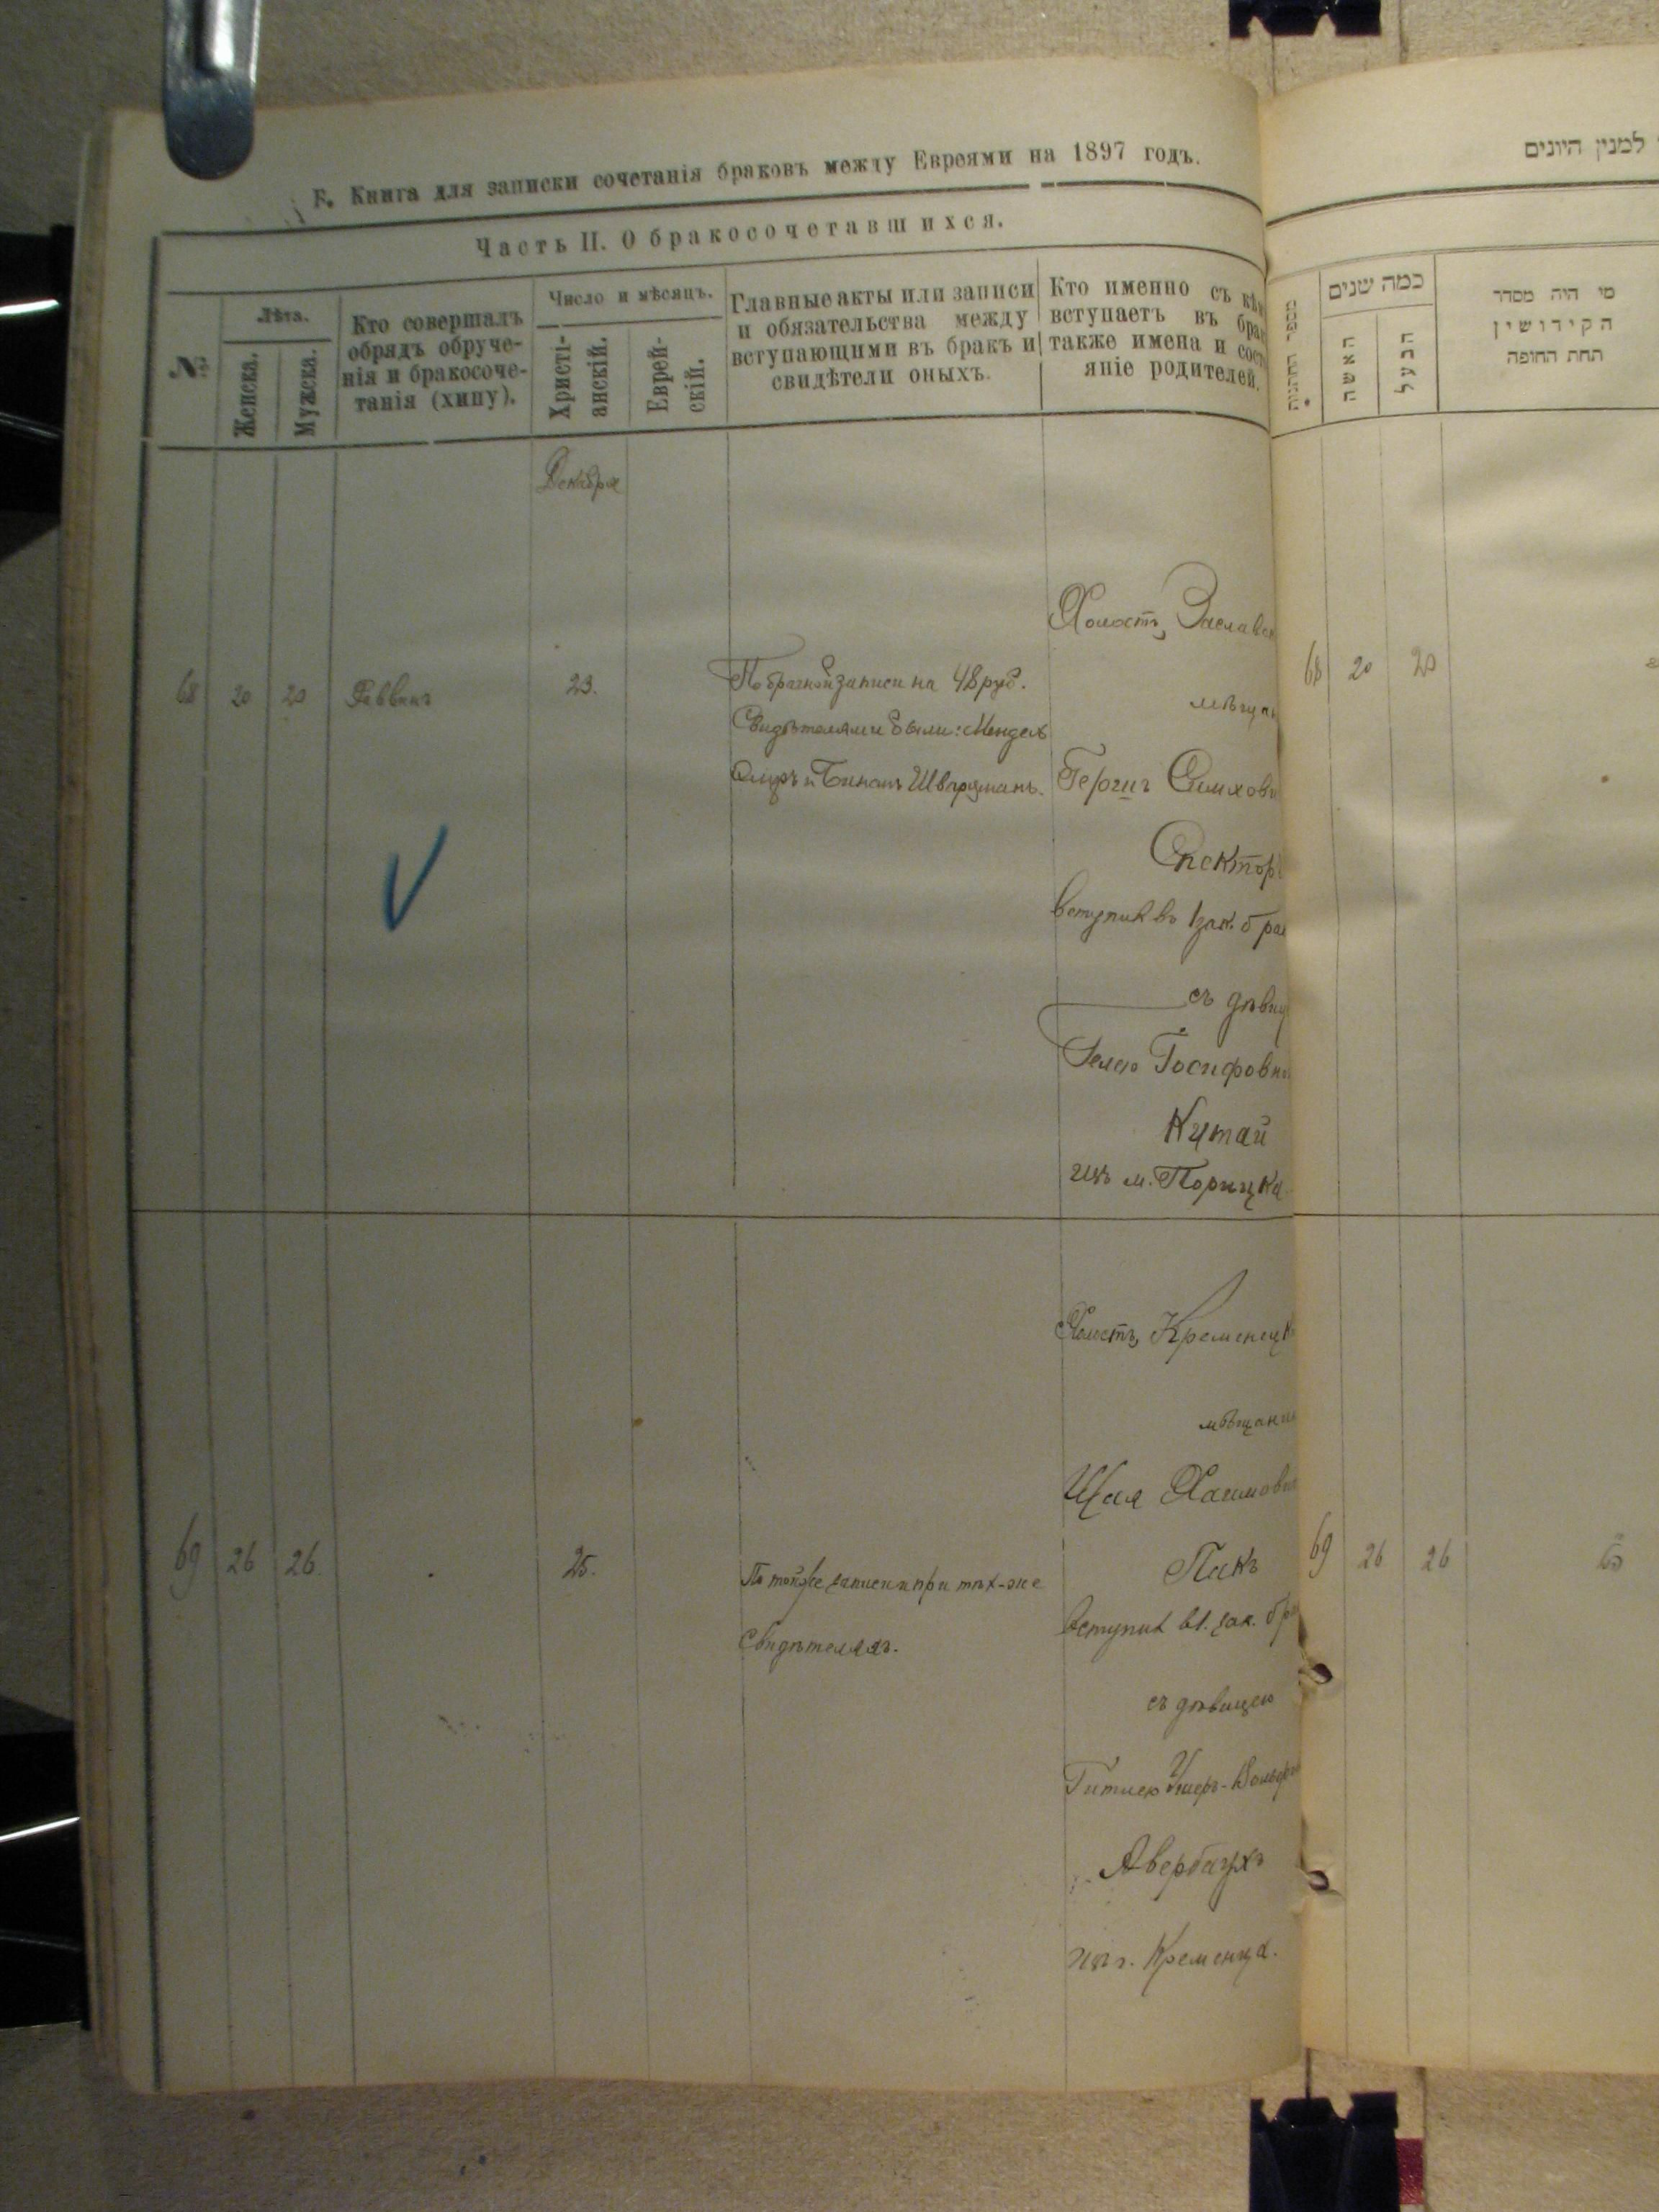 Б. Книга для записки сочетанія браковъ между Евреями на 1897 годъ.
Часть II. О бракосочетавшихся.
№
Лѣта.
Женска.
Мужска.
Кто совершалъ
обрядъ обруче-
нія и бракосоче-
танія (хипу).
Число и мѣсяцъ.
Христі-
анскій.
Еврей-
скій.
Главные акты или записи
и обязательства между
вступающими въ бракъ и
свидѣтели оныхъ.
Кто именно съ кѣм
вступаетъ въ бра
также имена и сост
яніе родителей.
Декабря
68 20 20 Раввинъ 23.
По брачной записи на 48 руб.
Свидѣтелями были: Мендель
и Шварцманъ.
Холостъ, Заславск
мѣщан
Герцъ Симхови
Спекторъ
вступилъ въ 1 зак. брак
съ дѣвиц
Іосифовно
Китай
изъ м. Порицка
69 26 26 25.
По той же записи и при тѣхъ-же
свидѣтеляхъ.
Холостъ, Кременецк
мѣщанин
Шая Хаимович
Пикъ
вступилъ въ 1. зак. бра
съ дѣвицею
Гитлею
Авербухъ
изъ г. Кременца.
למנין היונים
מספר החתונות
כמה שנים
האשה
הבעל
מי היה מסדר
הקידושין
תחת החופה
68 20 20
69 26 26